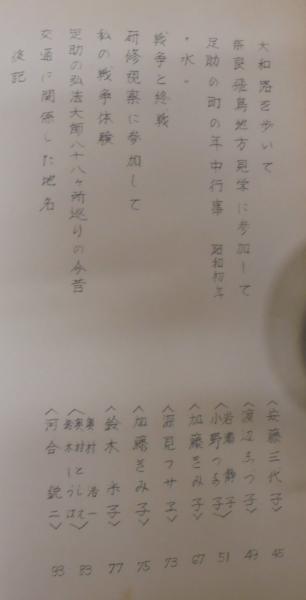 大和路を歩いて 〈安藤三代子〉 45
奈良飛鳥地方見学に参加して 〈渡辺ちつ子〉 49
足助の町の年中行事 昭和初年 〈岩瀬静子 小野つる子〉 51
"水" 〈加藤きみ子〉 67
戦争と終戦 〈深見フサヱ〉 73
研修視察に参加して 〈加藤きみ子〉 75
私の戦争体験 〈鈴木 子〉 77
足助の弘法大師八十八ヶ所巡りの今昔 〈奥村浩一 奥村とし 鈴木とうは〉 83
交通に関係した地名 〈河合鋭二〉 93
後記